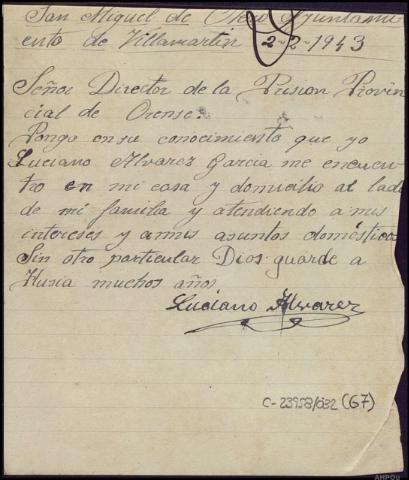 San Miguel de Otero Ayuntami
ento de Villamartin 2-2-1943
Señor Director de la Prision Provin
cial de Orense:
Pongo en su conocimiento que yo
Luciano Alvarez Garcia me encuen
tro en mi casa y domicilio al lado
de mi familia y atendiendo a mis
intereses y a mis asuntos domésticos
Sin otro particular Dios guarde a
Husia muchos años
Luciano Alvarez
C-23958/032 (67)
AHPOU